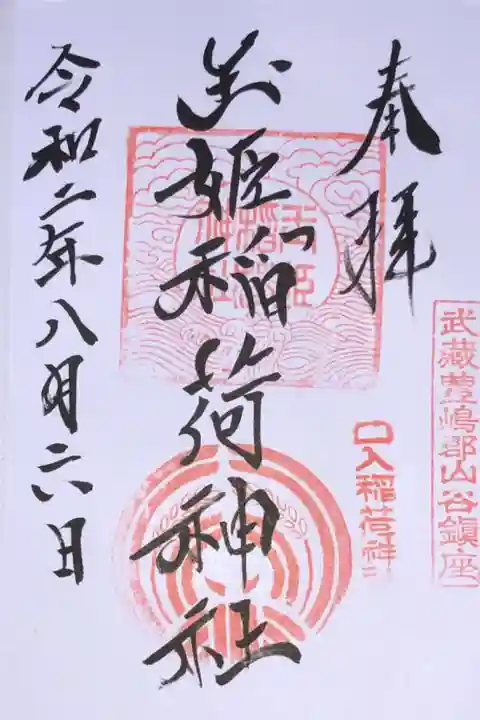 武蔵豊嶋郡山谷鎮座
奉拝
口入稲荷神社
玉姫稲荷神社
玉姫稲荷神社
令和二年八月六日